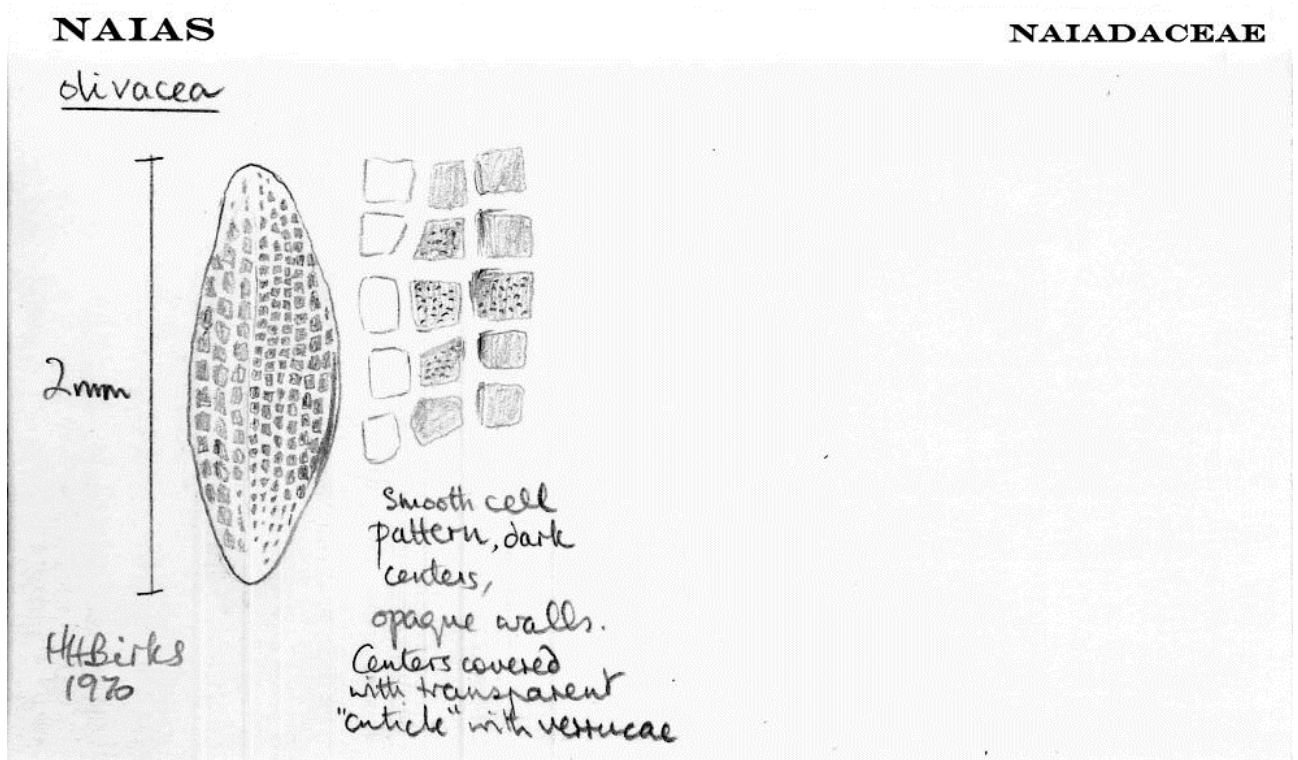 NAIAS
NAIADACEAE
olivacea
2mm
Smooth cell
pattern, dark
centers,
opaque walls.
Centers covered
with transparent
"cuticle" with verrucae
HHBirks
1970